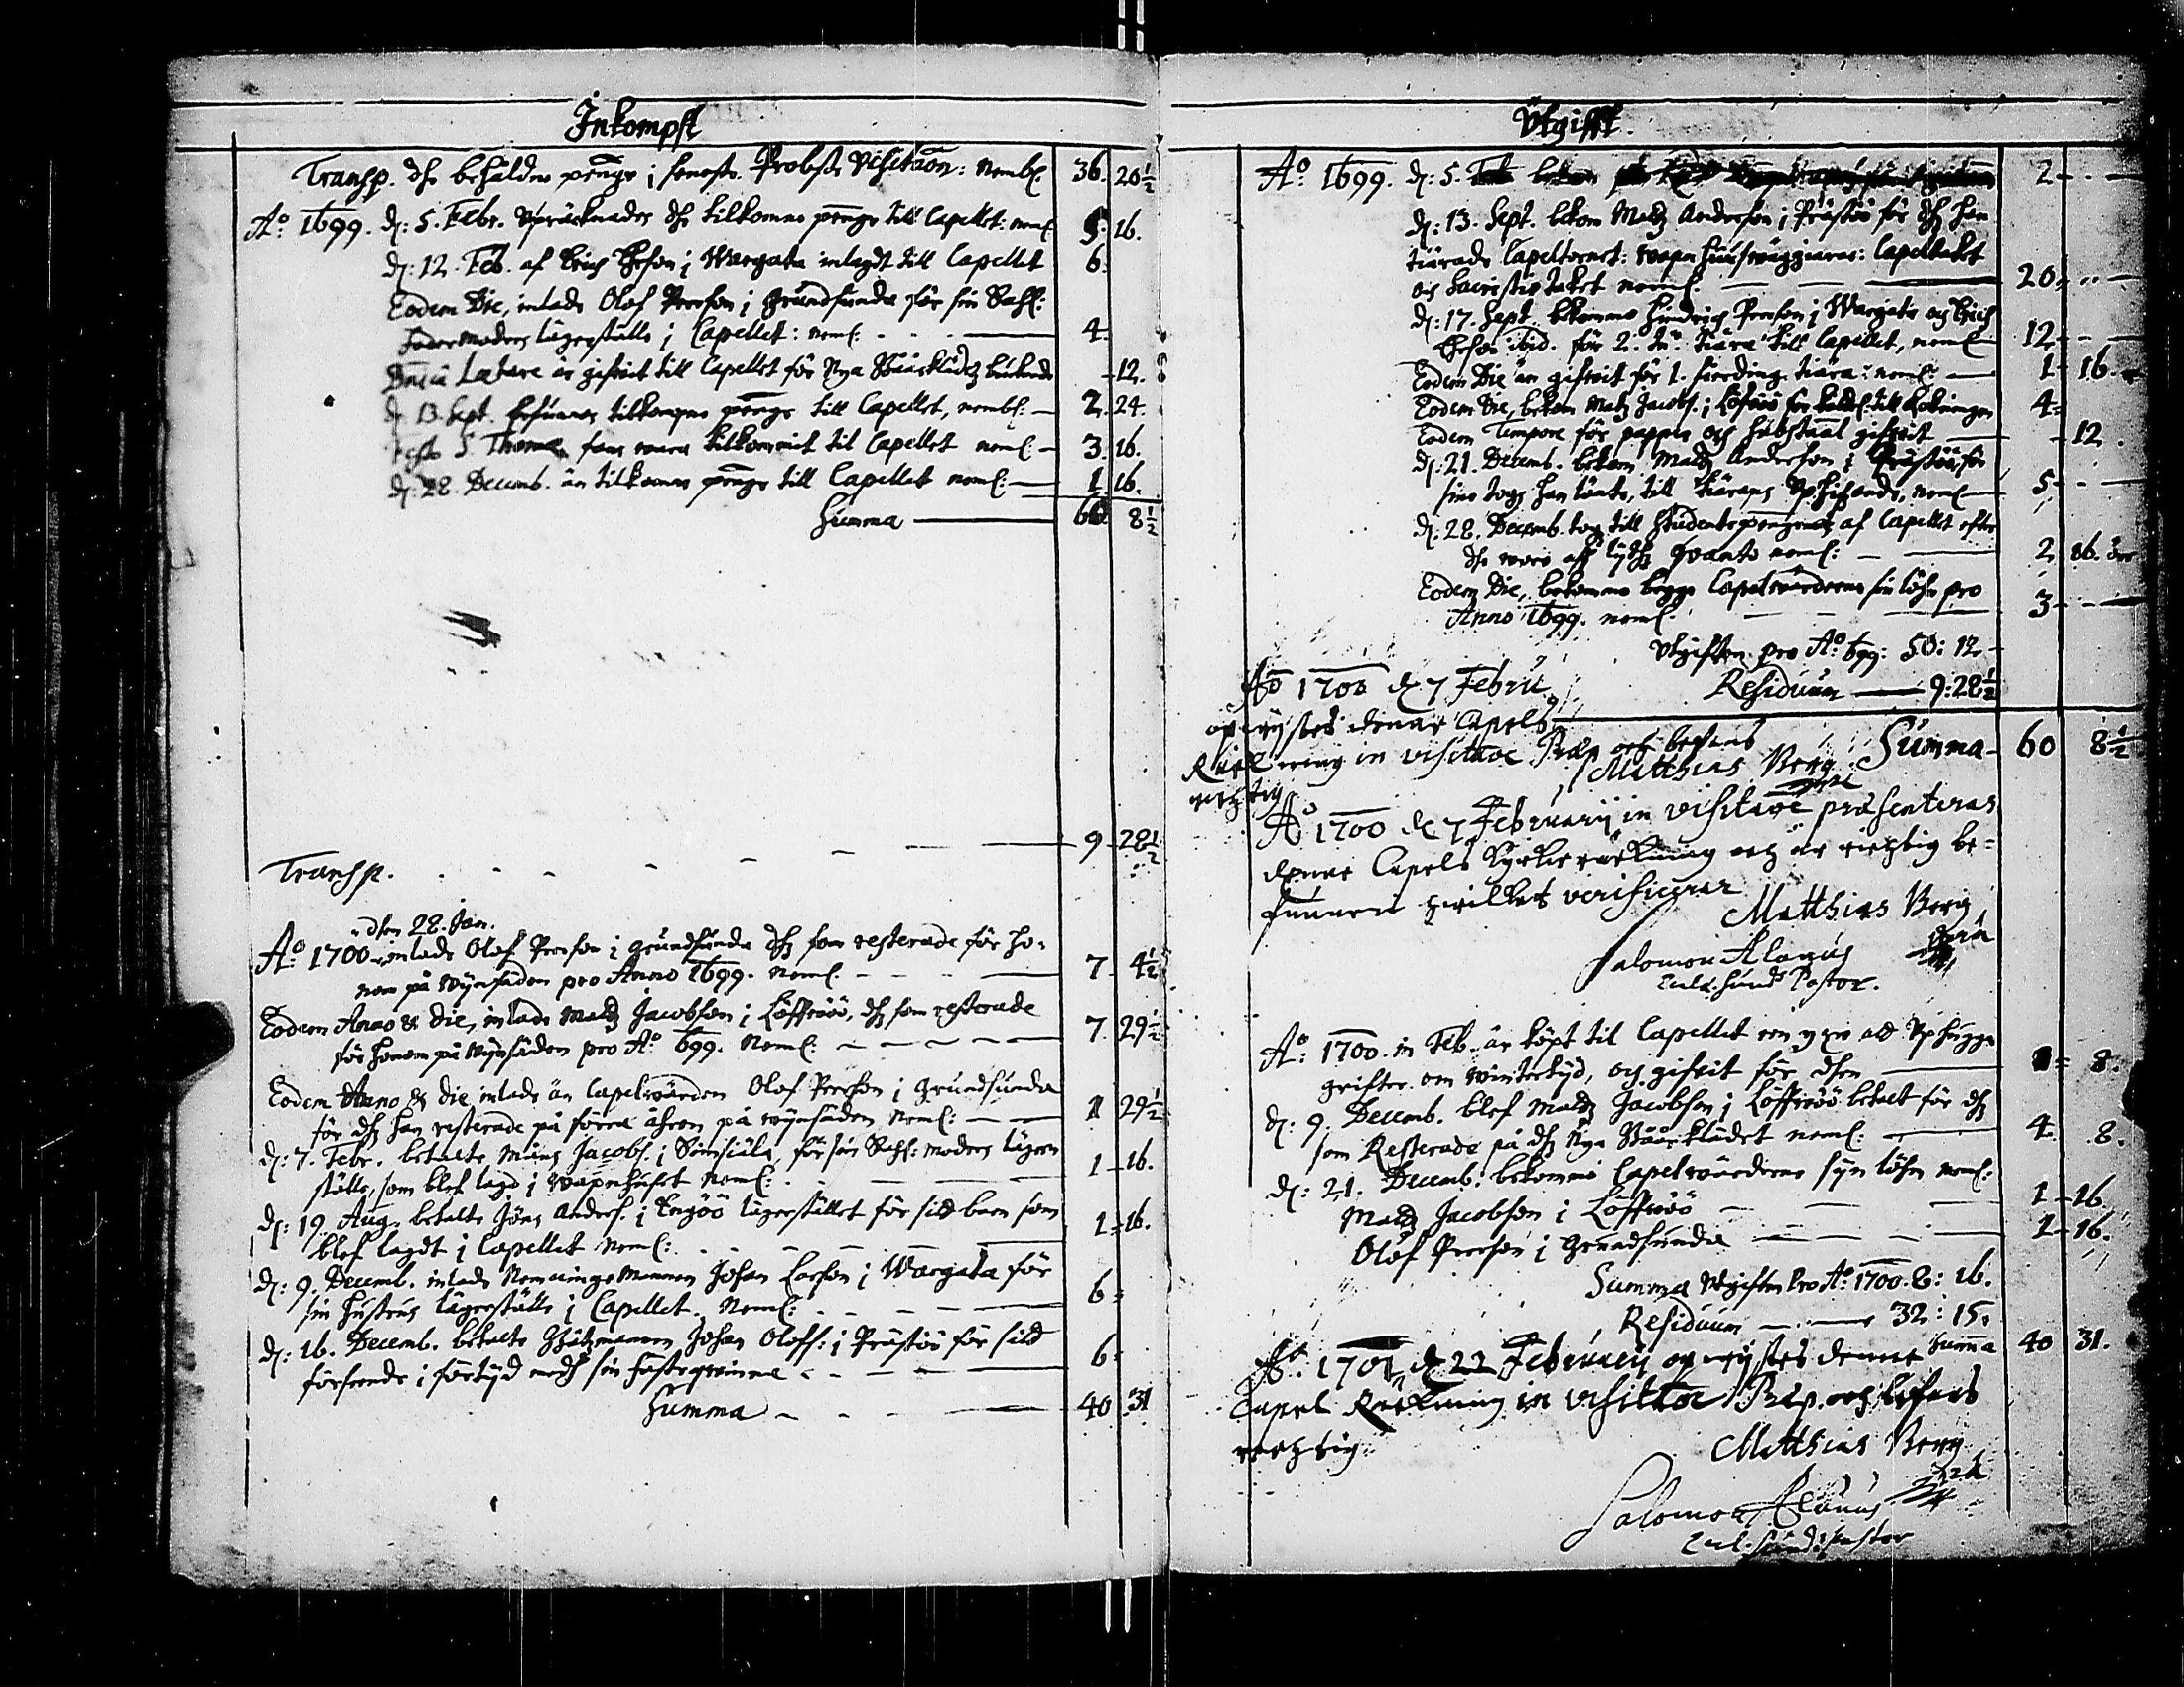 Inkompst
Transp. dhe behåldne penge i senaste Probste Visitation: nembl. 36. 20½
Ao: 1699. d: 5. Febr. Upräcknades dhe tilkomne penge till Capellet: neml 5. 16.
d: 12. Feb. af Erich Ersson i Wargata inlagdt till Capellet 6.
Eodem Die, inlade Olof Peersson i Grundsunda för sin Sahl:
Fadermoders lägerställe i Capellet: neml: 4.
Dnica Lætare är gifwit till Capellet för Nya Båårklädetz - 12.
d. 13. Sept. tilkompne penge till Capellet, nembl: 2. 24.
Festo S. Thomæ fans wara tilkommit til Capellet neml: 3. 16.
d: 28. Decemb. är tilkomne penge till Capellet neml: 1. 16.
Summa 60. 8½
Transp. 9 - 28½
dhen 28. Jan.
Ao: 1700 inlade Olof Peersson i Grundsunda dhz som resterade för ho-
nom på Wijnsäden pro Anno 1699. neml. 7. 4½
Eodem Anno & Die, inlade Matz Jacobsson i Löffwöö, dhz som resterade
för honom på Wijnsäden pro Ao 699. Neml: 7. 29½
Eodem Anno & Die inlade än Capelwärden Olof Peersson i Grundsunda
för dhz han resterade på förra åhren på wijnsäden neml: 1 29½
d: 7. Febr. betalte Måns Jacobs. i Sönsiäla, för sin Sahl: moders läger-
ställe, som blef lagd i Wapnhuset Neml: 1 - 16.
d: 19. Aug. betalte Jöns Anders. i Engöö lägerstället för sitt barn som
blef lagdt i Capellet Neml: 1 - 16.
d: 9. Decemb. inlade Nemningsmannen Johan Larsson i Wargata för
sin hustrus lägerställe i Capellet. Neml: 6 -
d: 16. Decemb. betalte Johan Olofs: i Prästöö för sitt
förseende i förtijd medh sin fästeqwinna 6 -
Summa 40 31
Utgifft.
Ao: 1699. d: 5. Feb. 2 - -
d: 13. Sept. bekom Matz Andersson i Prästöö för dhz han
tiärade Capeltornet: wapnhuuswäggiarne: Capeltaket
och Sacristie taket neml: 20 -
d: 17. Sept. bekomme Hindrich Peersson i Wargata och Erich
Ersson ibid. för 2. t:r tiära till Capellet, neml 12 -
Eodem Die är gifwit för 1. fierding tiära: neml: 1 - 16.
Eodem Die, bekom Matz Jacobs. i Löfwöö för till 4 -
Eodem Tempore för papper och gifwit - 12.
d: 21. Decemb. bekom Matz Andersson i Prästöö, för
sine togh han länte, till tiärans Uphissande, neml 5 -
d: 28. Decemb. tog till Studentepengarne af Capellet efter
dhe wore aff lijdhz qvanto neml: 2 16. öre
Eodem Die, bekomme begge Capelwärderne sin löhn pro
Anno 1699. neml. 3 -
Utgifften pro Ao: 699: 50: 12.
Residuum 9: 28½
Summa 60 8½
Ao 1700 d 7 Febru
opwijstes denne Capels
Räkning in visitaoe Præp och befans
richtig
Matthias Berg
Ao 1700 d 7 Februarij in visitaoe præsenteras
denne Capels Kyrkie räkning och är richtig be-
funnen hwilket verificerar
Matthias Berg
Salomon Alanus
Eckl. Sund: Pastor.
Ao: 1700. in Feb. är köpt til Capellet een yxe att Uphugga
grifter om wintertijd, och gifwit för dhen - 8.
d: 9. Decemb. blef Matz Jacobsson i Löffwöö betalt för dhz
som Resterade på dhz Nya Båårklädet neml: 4. 8.
d: 21. Decemb: bekomme Capelwärderne sijn löhn neml:
Matz Jacobsson i Löffwöö 1 - 16.
Olof Peersson i Grundsunda 1 - 16.
Summa Utgiften Pro Ao: 1700. 8: 16.
Residuum 32: 15.
Summa 40 31.
Ao. 1701 d 22 Februarij opwijstes denne
Capel Räkning in visitaoe Præp. och befans
richtig
Matthias Berg
Salomon Alanus
Eckl. Sund: pastor